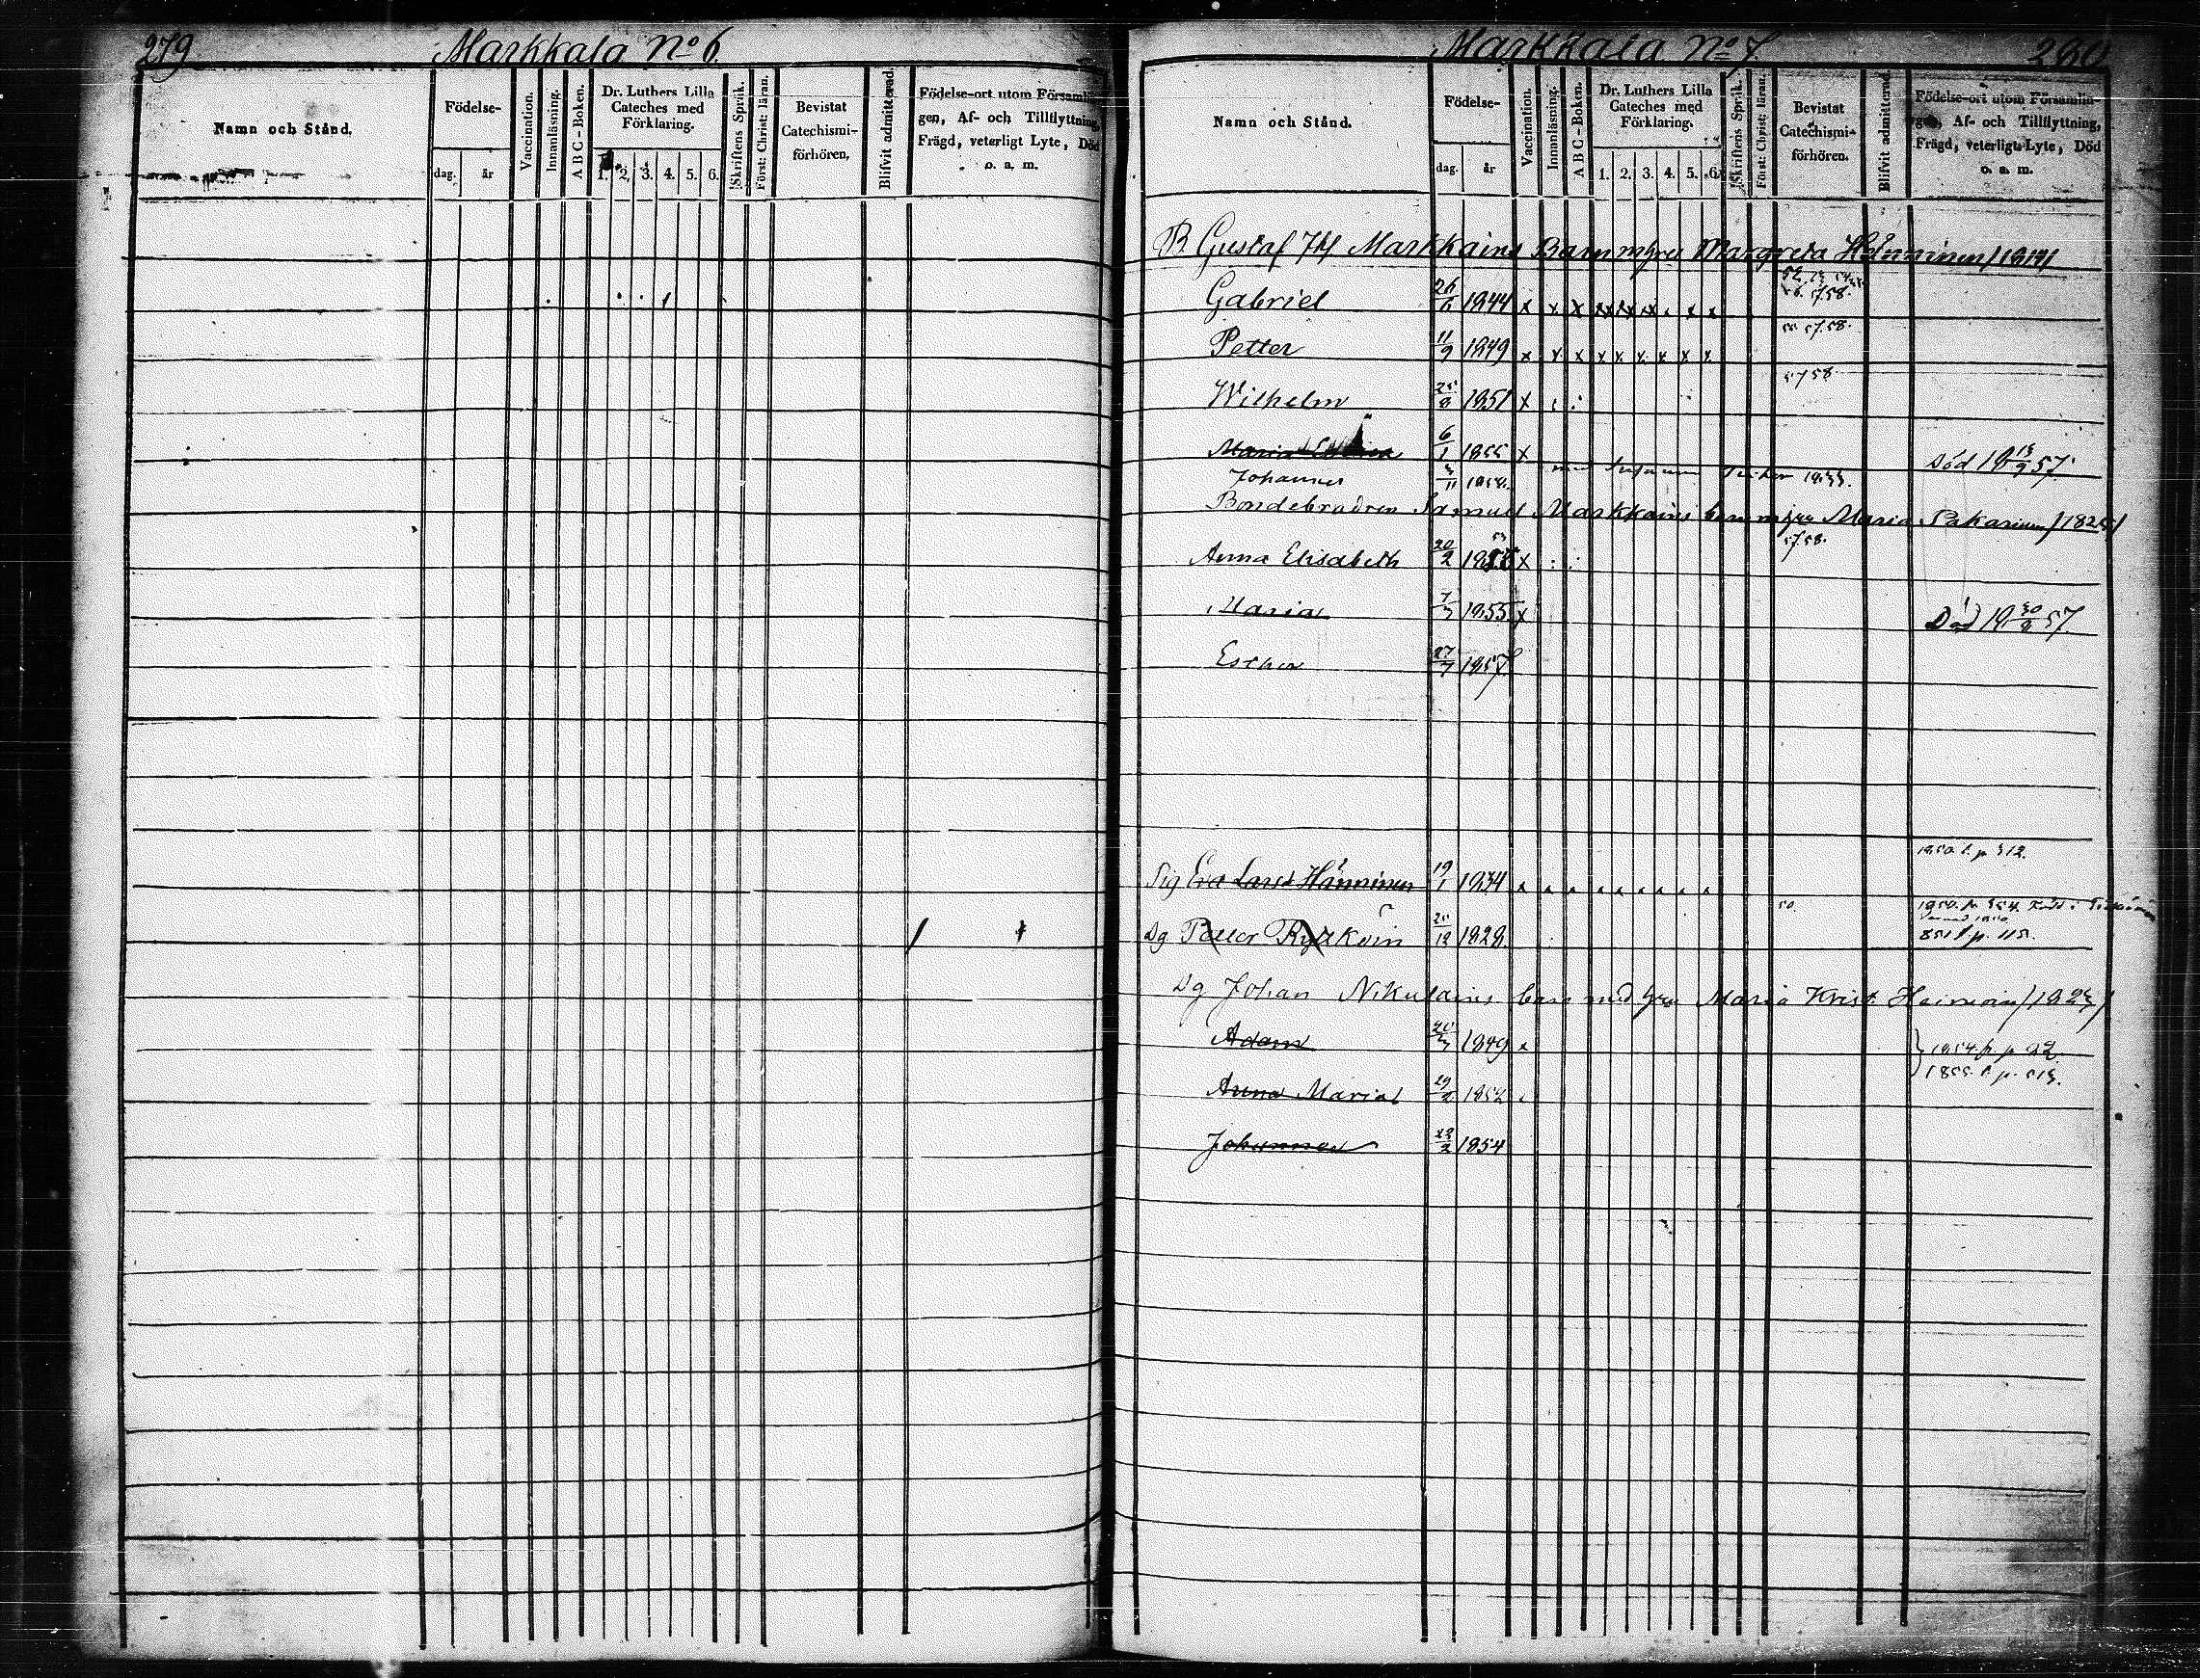 279 Markkala No 6.
Namn och Stånd.
Födelse-
dag. år
Vaccination.
Innanläsning.
A B C - Boken.
Dr. Luthers Lilla
Cateches med
Förklaring.
1. 2. 3. 4. 5. 6.
Skriftens Språk.
Först: Christ: läran.
Bevistat
Catechismi-
förhören.
Blifvit admitterad.
Födelse-ort utom Församlin-
gen, Af- och Tillflyttning,
Frägd, veterligt Lyte, Död
o. a. m.
Markkala No 7. 280
Namn och Stånd.
Födelse-
dag. år
Vaccination.
Innanläsning.
A B C - Boken.
Dr. Luthers Lilla
Cateches med
Förklaring.
1. 2. 3. 4. 5. 6.
Skriftens Språk.
Först: Christ: läran.
Bevistat
Catechismi-
förhören.
Blifvit admitterad.
Födelse-ort utom Församlin-
gen, Af- och Tillflyttning,
Frägd, veterligt Lyte, Död
o. a. m.
B Gustaf Markkains Barn m hru Margreta Hänninen /1819/
Gabriel 26/6 1844 x x x x x x x x 56. 57.58.
Petter 11/9 1849 x x x x x x x x x 57.58.
Wilhelm 25/8 1851 x 57 58
Maria 6/1 1855 x Död 18 13/9 57.
Johannes 3/11 1858.
Bondebrodren Samuel Markkains barn m hru Maria Pakarinen /1825/
Anna Elisabeth 20/2 x 57.58.
Maria 7/3 1855 x Död 18 30/8 57.
Esther 27/7 1857.
1850 f. p 312.
Pig Eva Larsd Hänninen 19/1 1834
Dg Petter 25/12 1828. 50. 851 f. p. 115.
Dg Johan Nikulains barn med hru Maria Krist. Heinoin /1827/
Adam 20/3 1849 x 1854 f. p 22.
Anna Maria 29/2 1852 1855 f. p. 513.
Johannes 28/2 1854